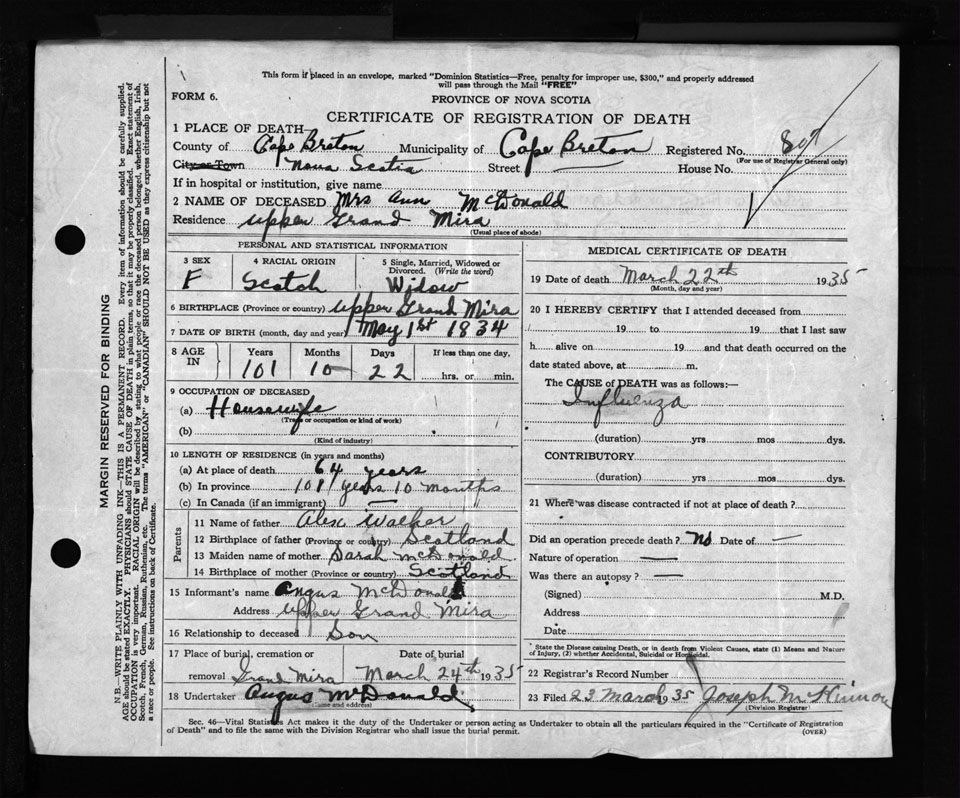 This form if placed in an envelope, marked "Dominion Statistics—Free, penalty for improper use, $300," and properly addressed
will pass through the Mail "FREE"
FORM 6.
PROVINCE OF NOVA SCOTIA
CERTIFICATE OF REGISTRATION OF DEATH
1 PLACE OF DEATH—
County of Cape Breton Municipality of Cape Breton Registered No. 807
(For use of Registrar General only)
City or Town Nova Scotia Street House No.
If in hospital or institution, give name
2 NAME OF DECEASED Mrs Ann McDonald
Residence Upper Grand Mira
(Usual place of abode)
PERSONAL AND STATISTICAL INFORMATION
3 SEX 4 RACIAL ORIGIN 5 Single, Married, Widowed or
Divorced. (Write the word)
F Scotch Widow
6 BIRTHPLACE (Province or country) Upper Grand Mira
7 DATE OF BIRTH (month, day and year) May 1st 1834
8 AGE IN Years Months Days If less than one day.
101 10 22 hrs. or min.
9 OCCUPATION OF DECEASED
(a) Housewife
(Trade or occupation or kind of work)
(b)
(Kind of industry)
10 LENGTH OF RESIDENCE (in years and months)
(a) At place of death 64 years
(b) In province 101 years 10 months
(c) In Canada (if an immigrant)
Parents
11 Name of father Alex Walker
12 Birthplace of father (Province or country) Scotland
13 Maiden name of mother Sarah McDonald
14 Birthplace of mother (Province or country) Scotland
15 Informant's name Angus McDonald
Address Upper Grand Mira
16 Relationship to deceased Son
17 Place of burial, cremation or Date of burial
removal Grand Mira March 24th 1935
18 Undertaker Angus McDonald
(Name and address)
MEDICAL CERTIFICATE OF DEATH
19 Date of death March 22th 1935
(Month, day and year)
20 I HEREBY CERTIFY that I attended deceased from
19 to 19 that I last saw
h alive on 19 and that death occurred on the
date stated above, at m.
The CAUSE of DEATH was as follows:—
Influenza
(duration) yrs mos dys.
CONTRIBUTORY
(duration) yrs mos dys.
21 Where was disease contracted if not at place of death?
Did an operation precede death? No Date of —
Nature of operation —
Was there an autopsy? —
(Signed) M.D.
Address
Date
* State the Disease causing Death, or in death from Violent Causes, state (1) Means and Nature
of Injury, (2) whether Accidental, Suicidal or Homicidal.
22 Registrar's Record Number
23 Filed 23 March 1935 Joseph
(Division Registrar)
Sec. 46—Vital Statistics Act makes it the duty of the Undertaker or person acting as Undertaker to obtain all the particulars required in the "Certificate of Registration
of Death" and to file the same with the Division Registrar who shall issue the burial permit.
(OVER)
MARGIN RESERVED FOR BINDING
N.B.—WRITE PLAINLY WITH UNFADING INK—THIS IS A PERMANENT RECORD. Every item of information should be carefully supplied.
AGE should be stated EXACTLY. PHYSICIANS should STATE CAUSE OF DEATH in plain terms, so that it may be properly classified. Exact statement of
OCCUPATION is very important. RACIAL ORIGIN will be described by stating to what people or race the deceased person belonged, whether English, Irish,
Scotch, French, German, Russian, Ruthenian, etc. The terms "AMERICAN" or "CANADIAN" SHOULD NOT BE USED as they express citizenship but not
a race or people. See instructions on back of Certificate.